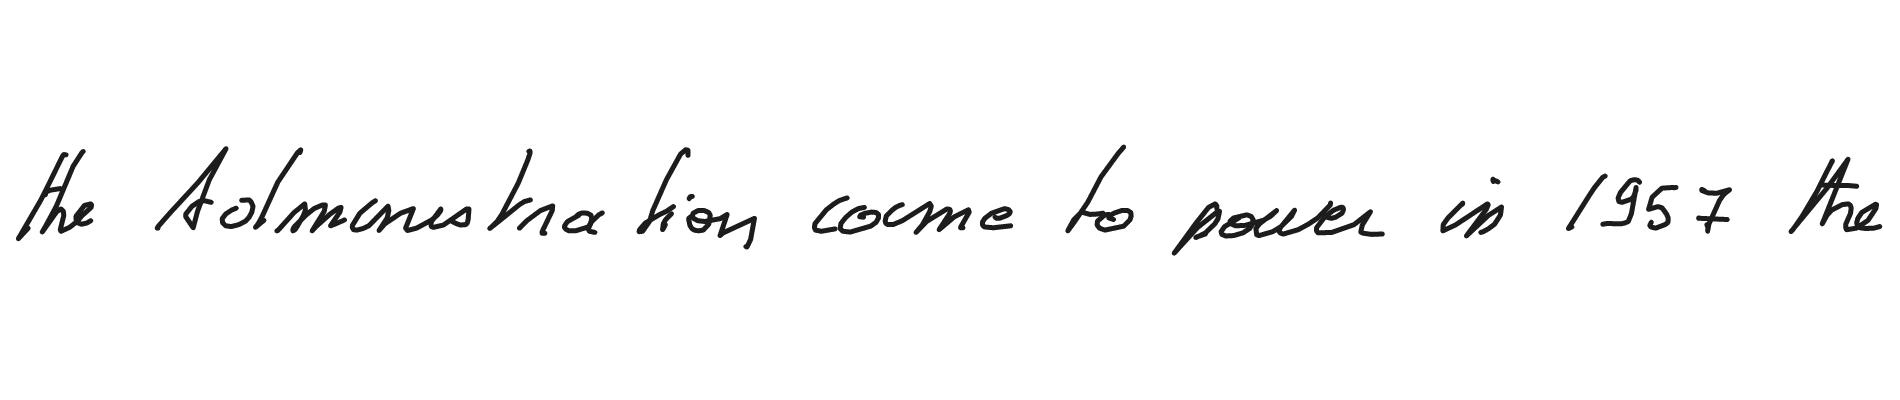 the Administration came to power in 1957 the